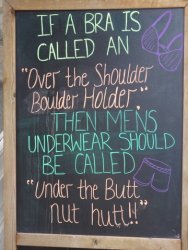 IF A BRA IS
CALLED AN
"OVER THE SHOULDER
BOULDER HOLDER,"
THEN MENS
UNDERWEAR SHOULD
BE CALLED
"UNDER THE BUTT
NUT HUTT!!"